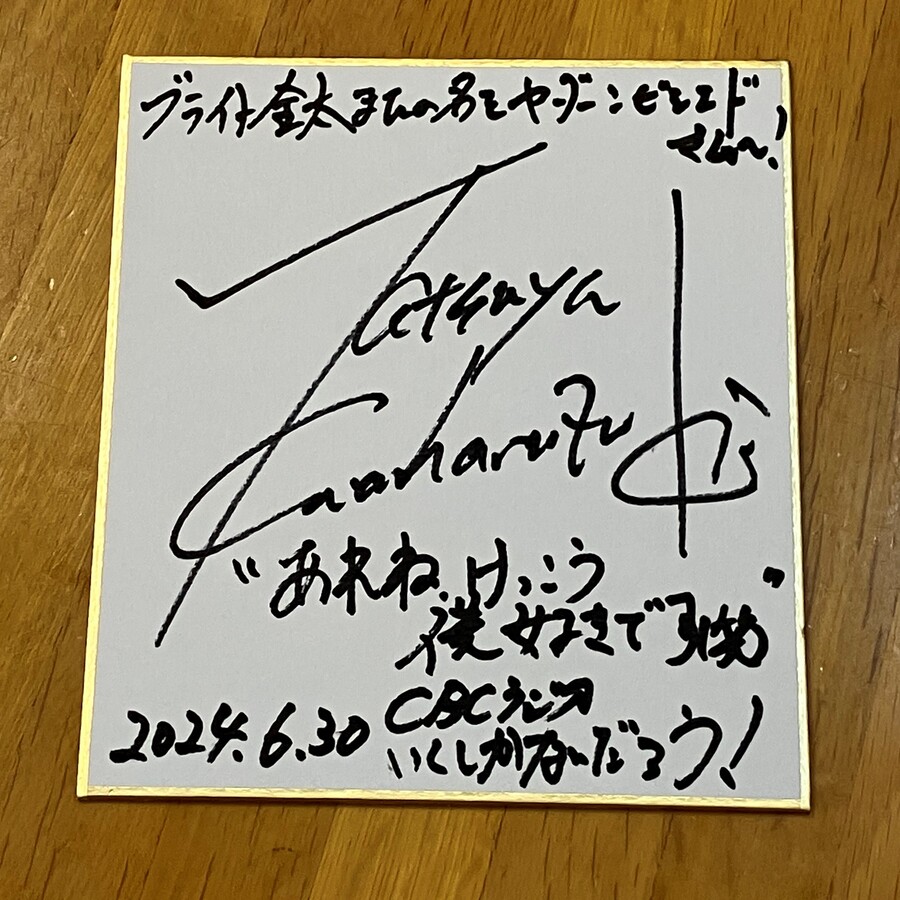 ブライト金太またの名をヤーダーンビシエド
さんへ!
Tatsuya
Kumamaru
"あれね、けっこう
僕好きで引笑"
2024.6.30 CBCラジオ
いくしかないだろう!